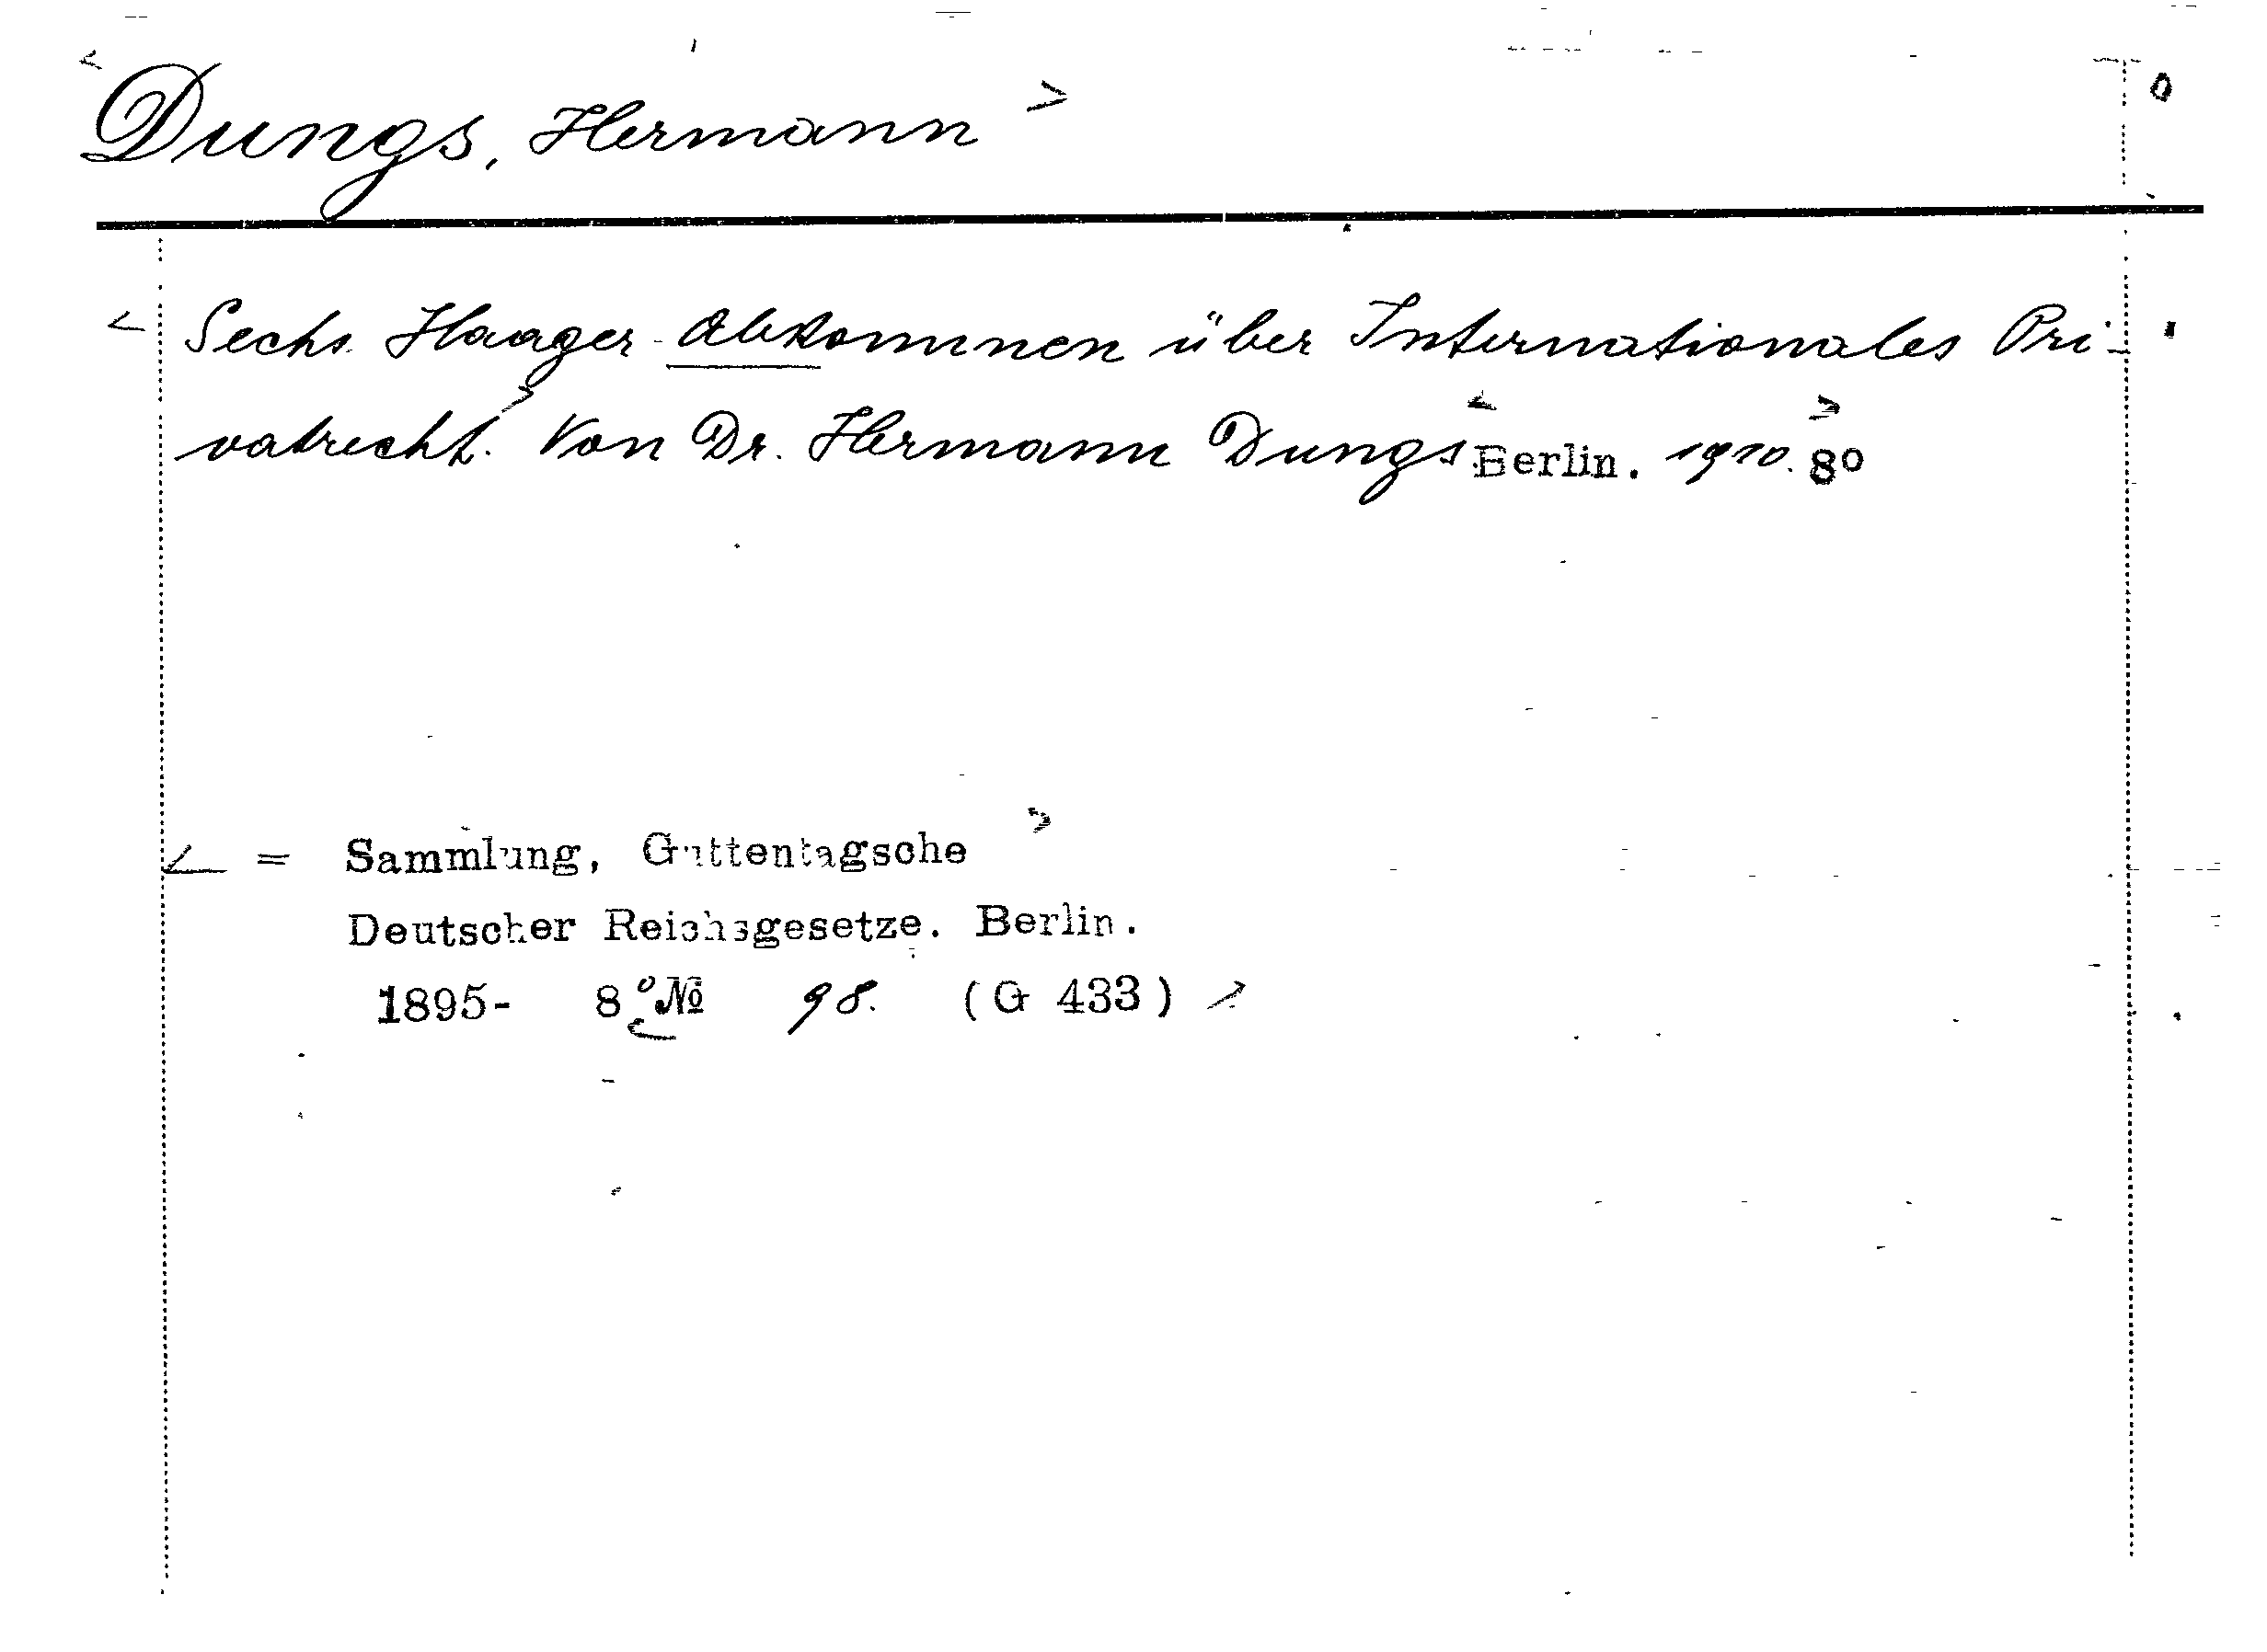 <Dungs, Hermann>
<Sechs Haager Abkommen über Internationales Pri-
vatrecht.> Von Dr. Hermann Dungs. <Berlin. 1910. 8°>
<= Sammlung, Guttentagsche>
Deutscher Reichsgesetze. Berlin.
1895- 8° № 98. (G 433)>